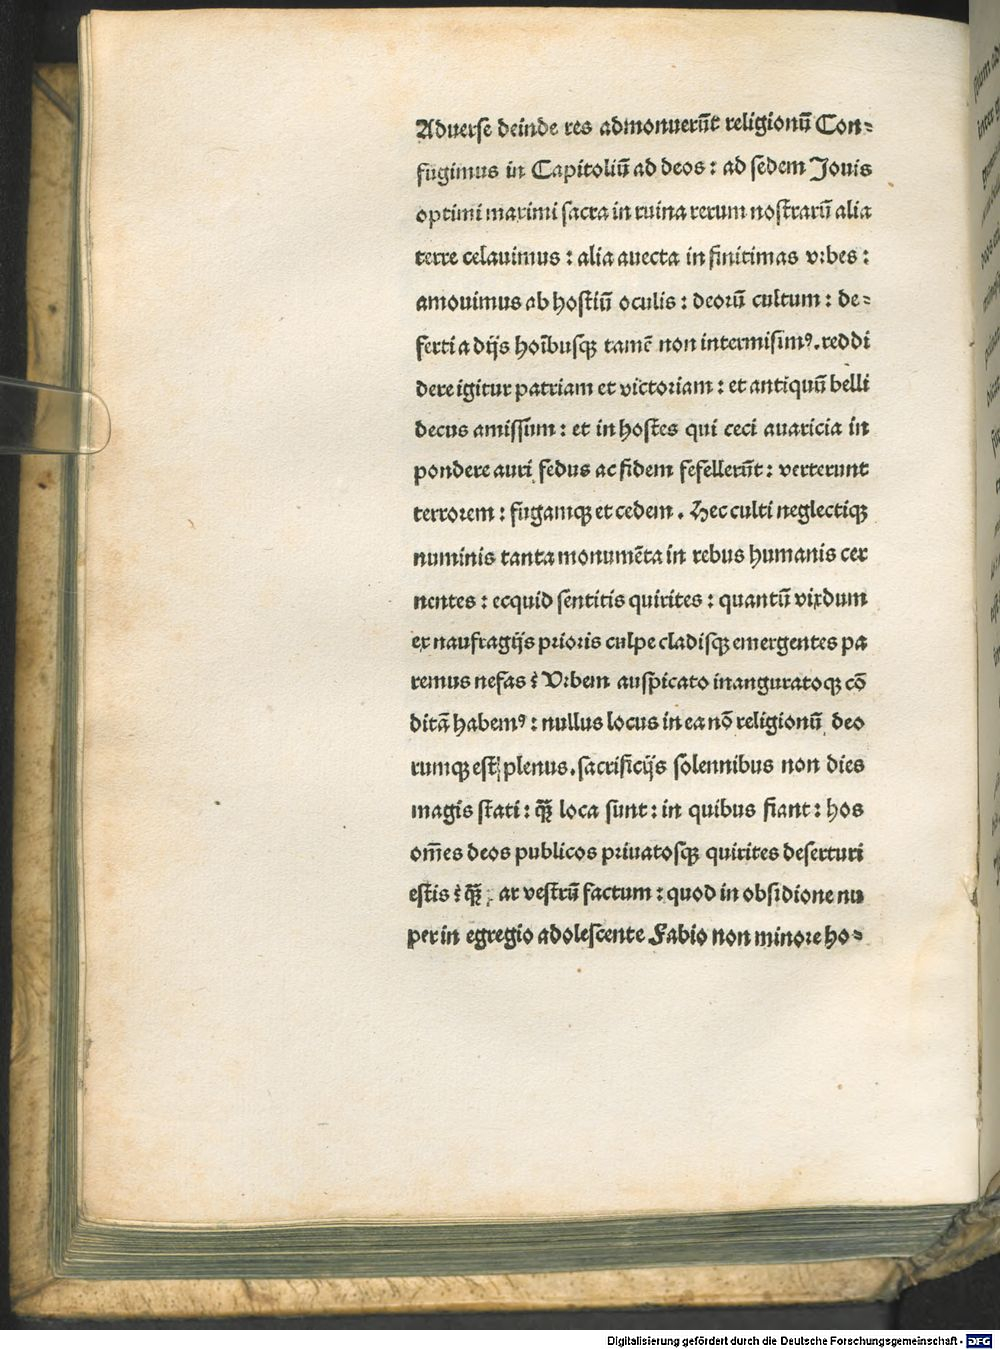 Aduerse deinde res admonuerūt religionū Con⸗
fugimus in Capitoliū ad deos : ad sedem Jouis
optimi maximi sacra in ruina rerum nostrarū alia
terre celauimus : alia auecta in finitimas vrbes :
amouimus ab hostiū oculis : deorū cultum : de⸗
serti a dijs hoībusqꝫ tamē non intermisimꝰ . reddi
dere igitur patriam et victoriam : et antiquū belli
decus amissum : et in hostes qui ceci auaricia in
pondere auri fedus ac fidem fefellerūt : verterunt
terrorem : fugamqꝫ et cedem . Hec culti neglectiqꝫ
numinis tanta monumēta in rebus humanis cer
nentes : ecquid sentitis quirites : quantū vixdum
ex naufragijs prioris culpe cladisqꝫ emergentes pa
remus nefas ? Vrbem auspicato inauguratoqꝫ cō
ditā habemꝰ : nullus locus in ea nō religionū deo
rumqꝫ est plenus . sacrificijs solennibus non dies
magis stati : qꝫ̄ loca sunt : in quibus fiant : hos
om̄es deos publicos priuatosqꝫ quirites deserturi
estis ? qꝫ̄ ar vestrū factum : quod in obsidione nu
per in egregio adolescente Fabio non minore ho⸗
Digitalisierung gefördert durch die Deutsche Forschungsgemeinschaft - DFG